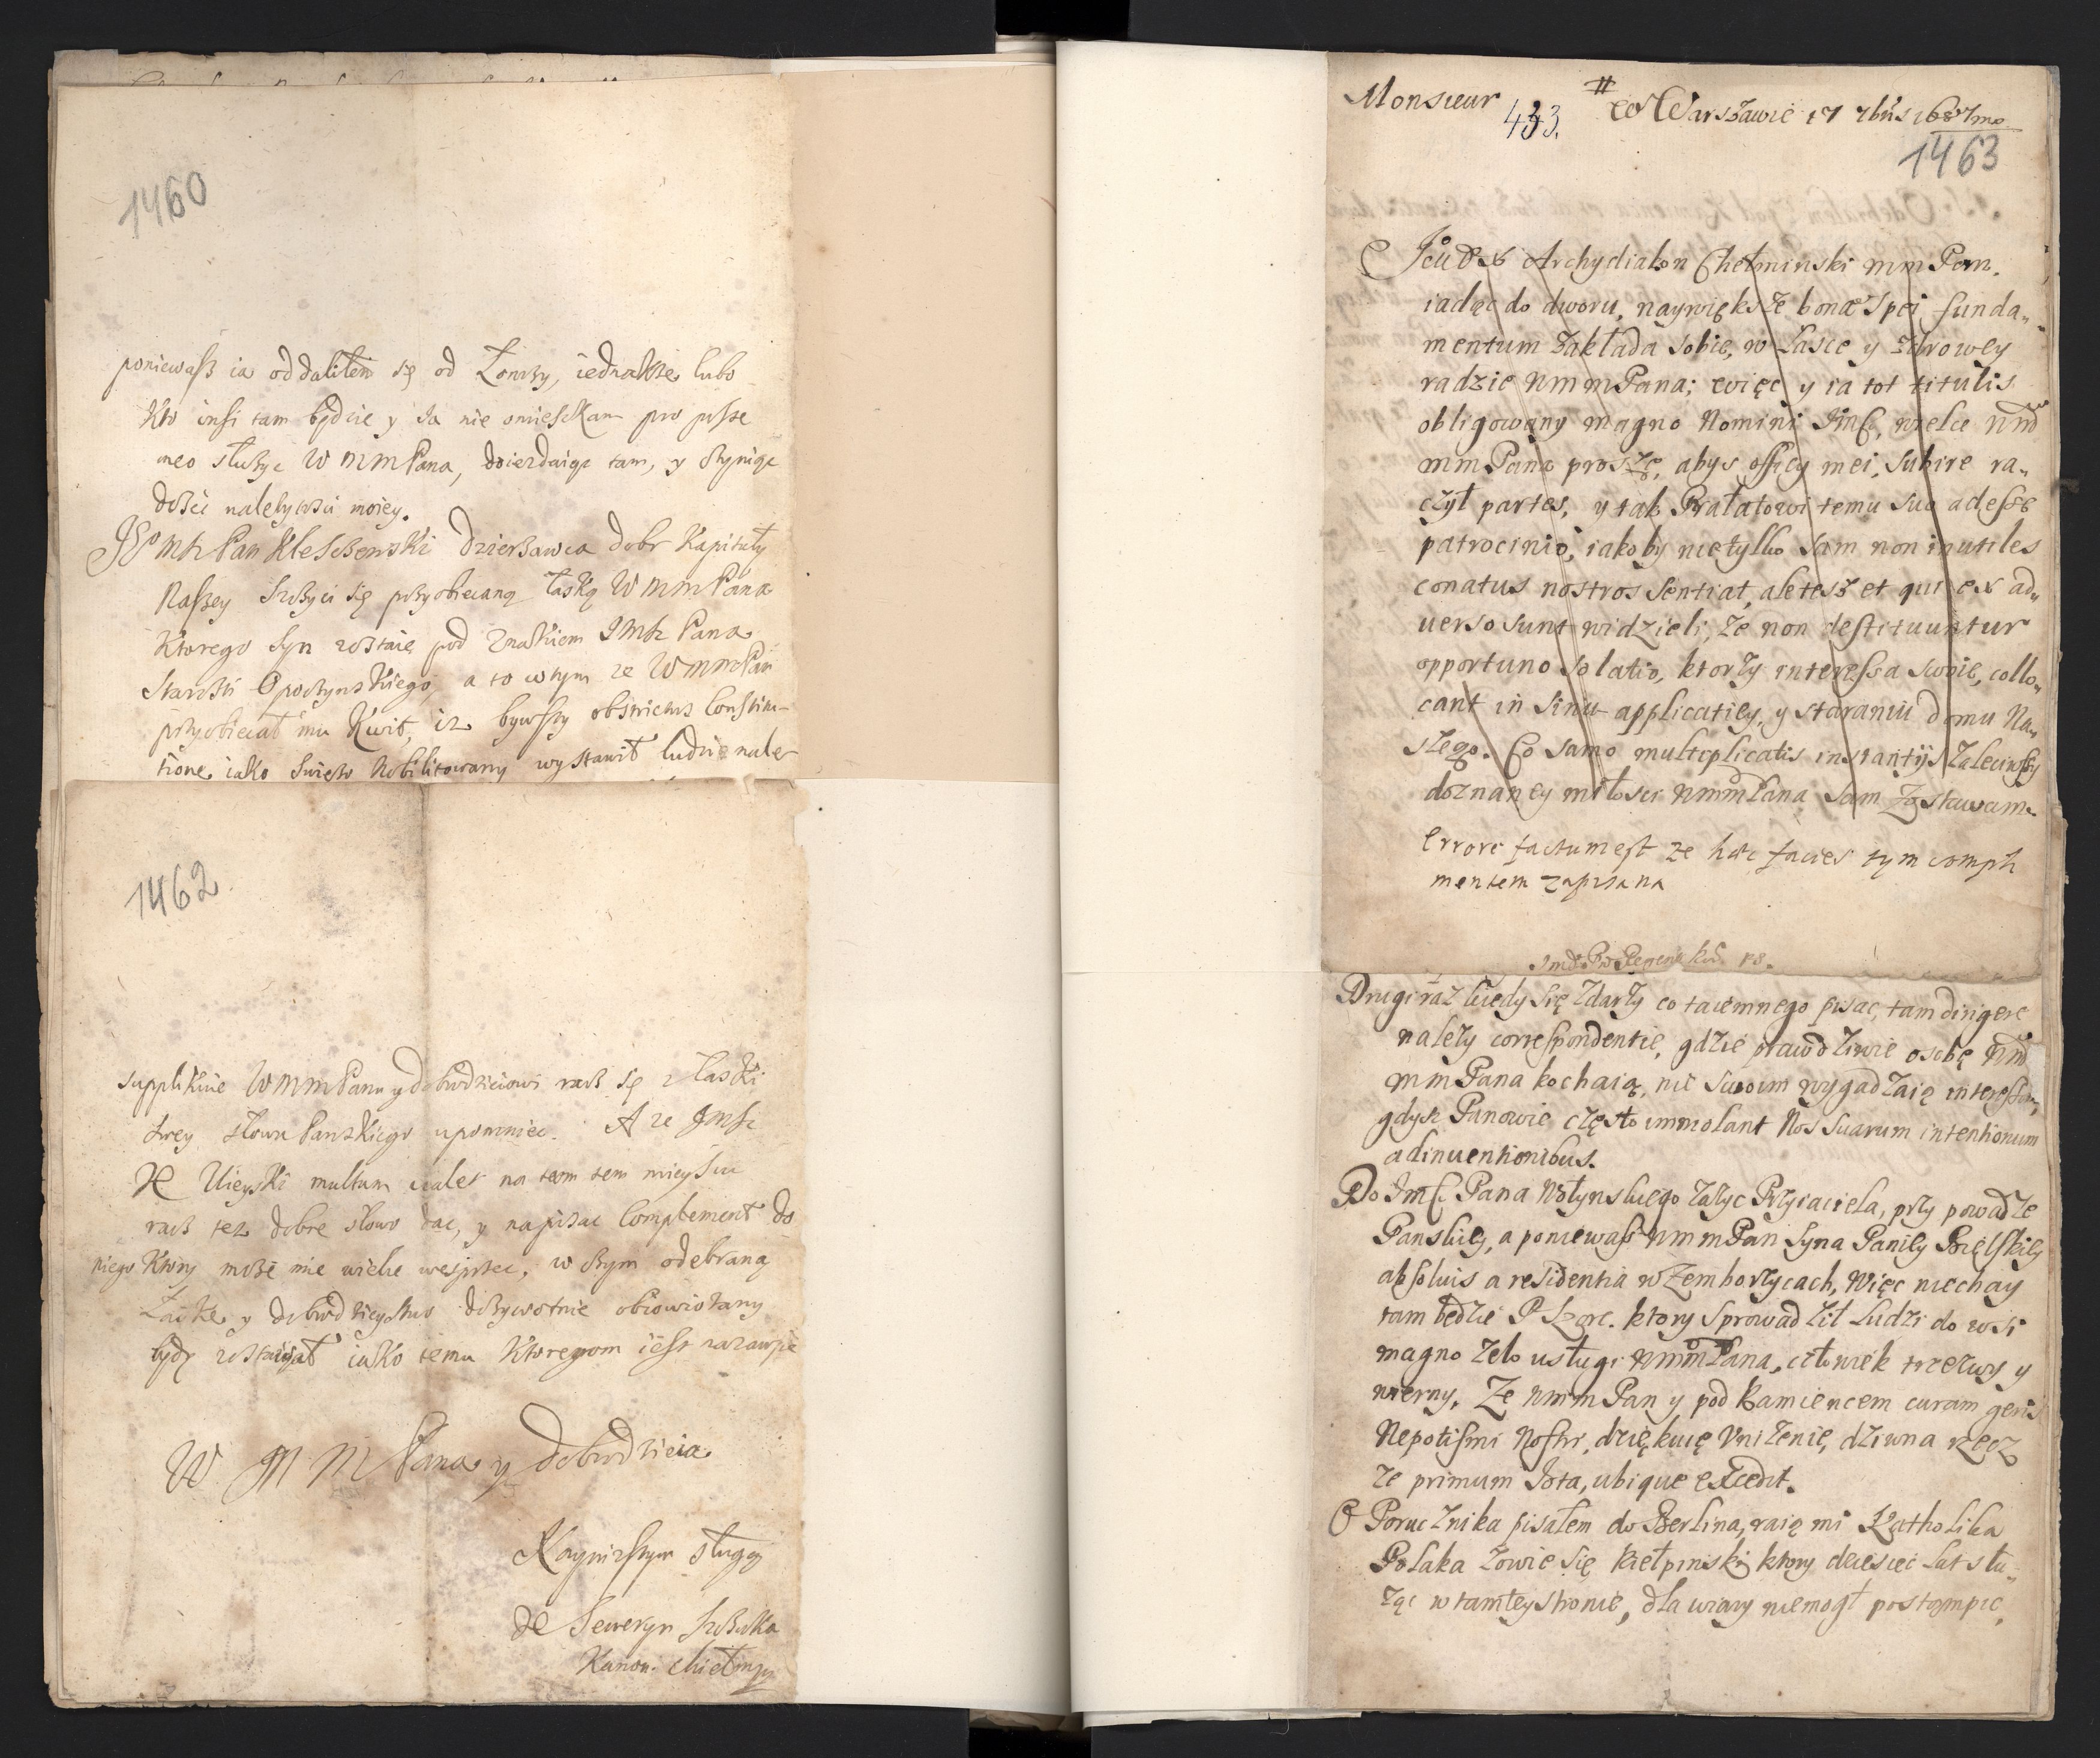 1460
poniewasz ia oddaliłem się od Łomży, iednakże lubo
Kto inszi tam będzie y Ja nie omieszkam pro posse
meo służyć W M M Pana, doierdaiąc tam, y czyniąc
dosić należytości moiey.
Pan Kleszczewski Dzierżawca dobr Kapituły
Naszey szczyci się przyobiecaną łaską W M M Pana
Ktorego Syn zostaie pod Znakiem Imci Pana
Starosti Opoczynskiego, a to w tym ze W M M Pan
przyobiecał mu Kwit, iz bywszy obstrictus Constitu-
tione iako swięzo Nobilitowany wystawił ludzie nale
1462
supplikuie W M M Panu y dobrodzieiowi racz się z łaski
swey słowa Panskiego upomniec. A ze Imsc
X Uieyski multum valet na tam tem mieyscu
racz tez dobre słowo dac, y napisac Complement do
niego Ktory może mie wielce wesprzec, w czym odebraną
Łaskę y dobrodzieystwo dożywotnie obowiązany
będę zostawał iako temu Ktoregom iest na zawsze
W M M Pana y Dobrodzieia
Nayniższym sługą
X Seweryn Szczuka
Kanon. Chełmży
Monsieur
433.
w Warszawie 17 7bris 1687mo
1463
Archydiakon Chełminski mm Pan.
iadąc do dworu, naywiększe bonæ spei funda-
mentum zakłada sobie, w łasce y zdrowey
radzie Wm m Pana; więc y ia tot titulis
obligowany magno Nomini Imsc, wielce Wm
mm Pana proszę, abys officy mei, subire ra-
czył partes, y tak Prałatowi temu suo adesse
patrocinio, iakoby nietylko sam non inutiles
conatus nostros sentiat, ale tesz et qui ex ad-
uerso sunt widzieli, że non destituuntur
opportuno solatio, ktorzy interessa swoie, collo-
cant in sinu applicatiey, y staraniu domu Na-
szego. Co samo multiplicatis instantijs zaleciwszy
doznaney miłosci Wmm Pana sam zostawam.
Errore factum est ze hæc facies tym compli
mentem zapisana
Drugi raz kiedy się zdarzy co taiemnego pisac, tam dirigere
należy correspondentie, gdzie prawdziwie osobę Wm
mm Pana kochaią, nie swoim wygadzaią interessom,
gdysz Panowie często immolant Nos suarum intentionum
adinuentionibus.
Do Imsc Pana Wołynskiego zażyc Przyiaciela, przy powadze
Panskiey, a poniewasz Wm m Pan syna Paniey Bielskiey
absoluis a residentia w Zemborzycach, Więc niechay
tam będzie P ktory sprowadził Ludzi do wsi
magno zelo usługi Wmm Pana, człowiek trzezwy y
wierny. Że Wmm Pan y pod Kamiencem curam geris
Nepotismi Nostri, dziękuię Vniżenie, dziwna rzecz
że primum Iota, ubique excedit.
O Porucznika pisałem do Berlina, raią mi Katholika
Polaka zowie się Kiełpinski ktory dziesięc lat słu-
żąc w tamtey stronie, dla wiary niemogł postąmpic,